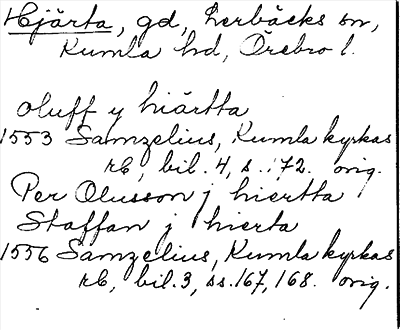 Hjärta, gd, Lerbäcks sn,
Kumla hd, Örebro l.
oluff y hiärtta
1553 Samzelius, Kumla kyrkas
rb, bil. 4, s. 172. orig.
Per Olusson j hiertta
Staffan j hierta
1556 Samzelius, Kumla kyrkas
rb, bil. 3, ss. 167, 168. orig.